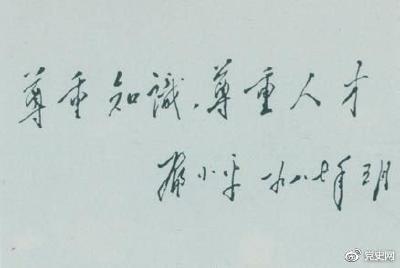 尊重知識、尊重人才
邓小平 一九八七年三月
党史网